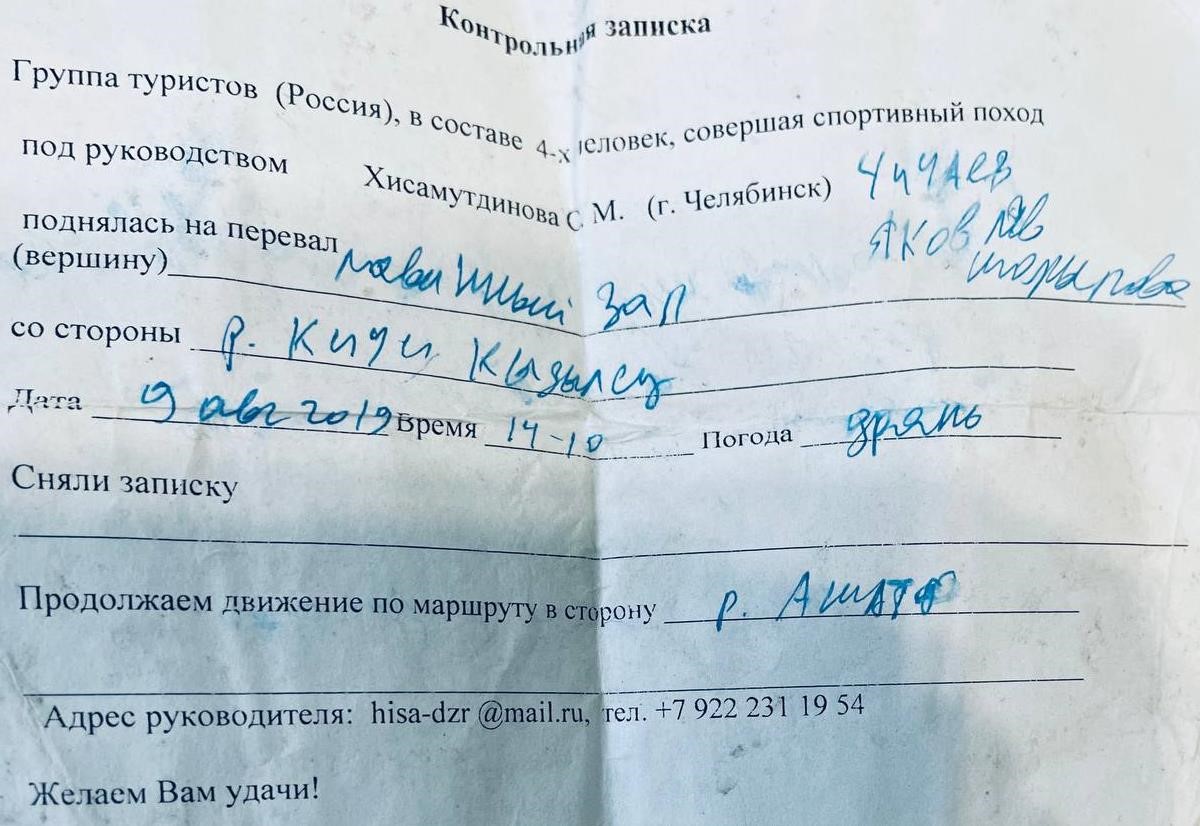 Контрольная записка
Группа туристов (Россия), в составе 4-х человек, совершая спортивный поход
под руководством Хисамутдинова С М. (г. Челябинск) Чичаев
Яковлев
поднялась на перевал
(вершину) Лавинный Зап
со стороны р. Кичи Кызылсу
Дата 9 авг 2019 Время 14-10 Погода дрянь
Сняли записку
Продолжаем движение по маршруту в сторону р. Ашат
Адрес руководителя: hisa-dzr @mail.ru, тел. +7 922 231 19 54
Желаем Вам удачи!